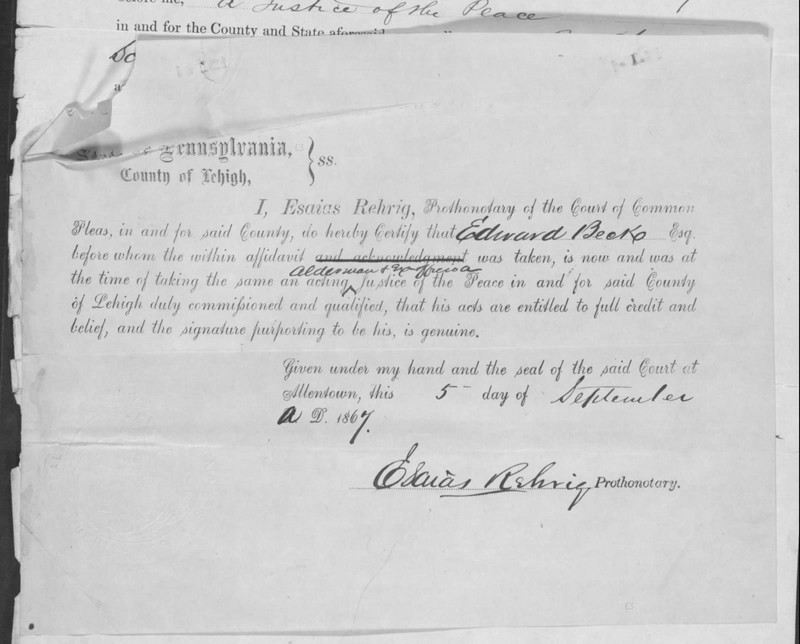 before me, a Justice of the Peace
in and for the County and State aforesaid
State of Pennsylvania,
County of Lehigh, } ss.
I, Esaias Rehrig, Prothonotary of the Court of Common
Pleas, in and for said County, do hereby Certify that Edward Beck Esq.
before whom the within affidavit and acknowledgment was taken, is now and was at
Alderman & Ex Officio
the time of taking the same an acting Justice of the Peace in and for said County
of Lehigh duly commissioned and qualified, that his acts are entitled to full credit and
belief, and the signature purporting to be his, is genuine.
Given under my hand and the seal of the said Court at
Allentown, this 5 day of September
A D. 1867.
Esaias Rehrig Prothonotary.